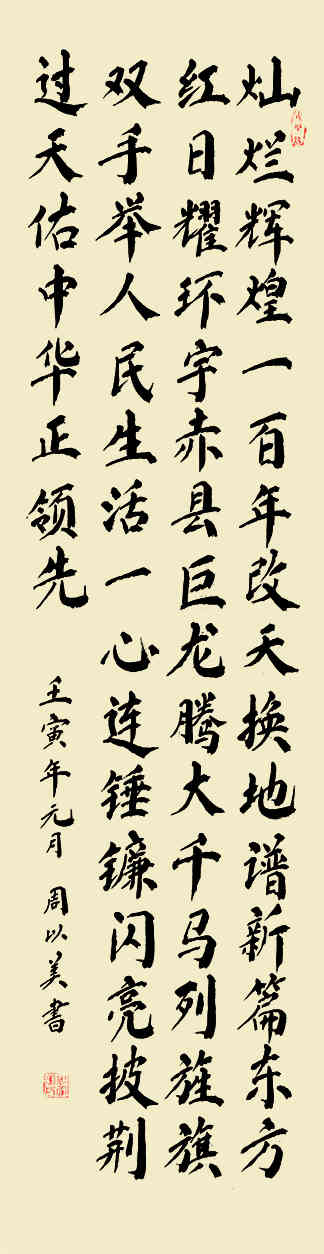 灿烂辉煌一百年改天换地谱新篇东方
红日耀环宇赤县巨龙腾大千马列旌旗
双手举人民生活一心连锤镰闪亮披荆
过天佑中华正领先
壬寅年元月 周以美書